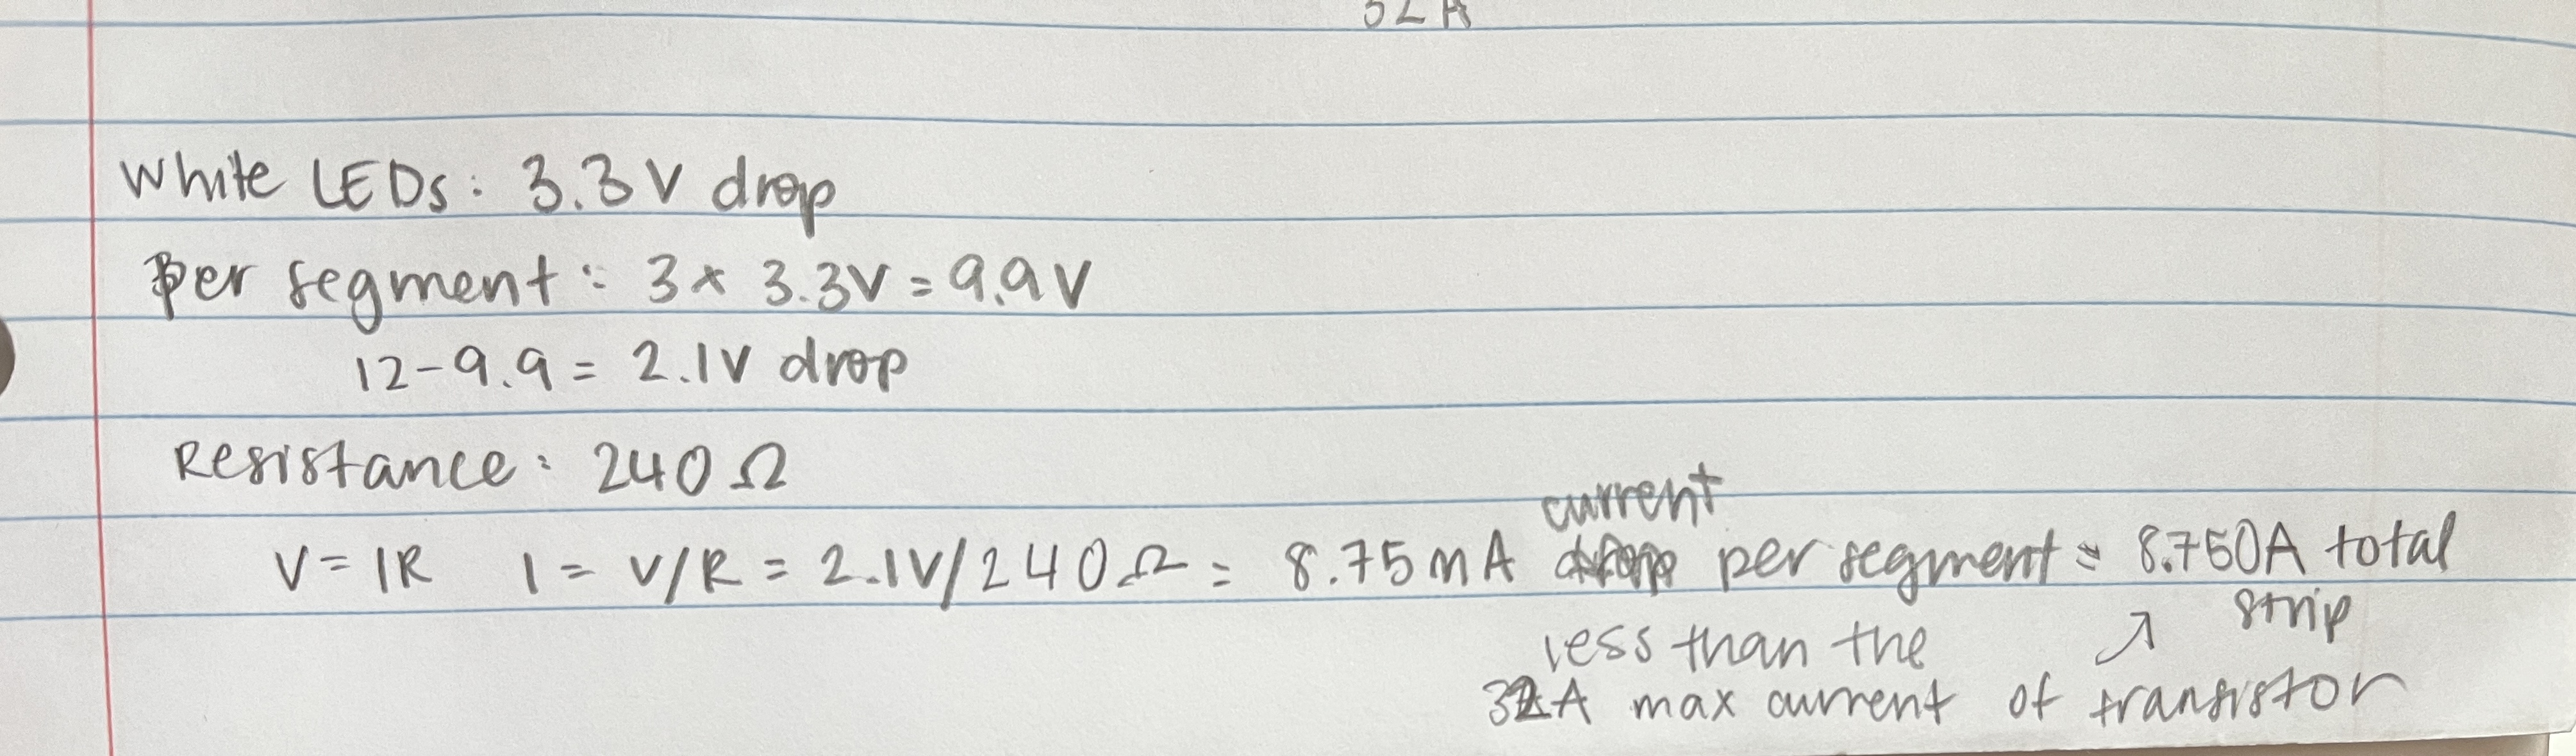 32A
White LEDs: 3.3V drop
Per segment: 3 x 3.3V = 9.9V
12-9.9 = 2.1V drop
Resistance: 240Ω
current
V=IR I = V/R = 2.1V/240Ω = 8.75mA per segment = 8.750A total
strip
less than the ↗
32A max current of transistor